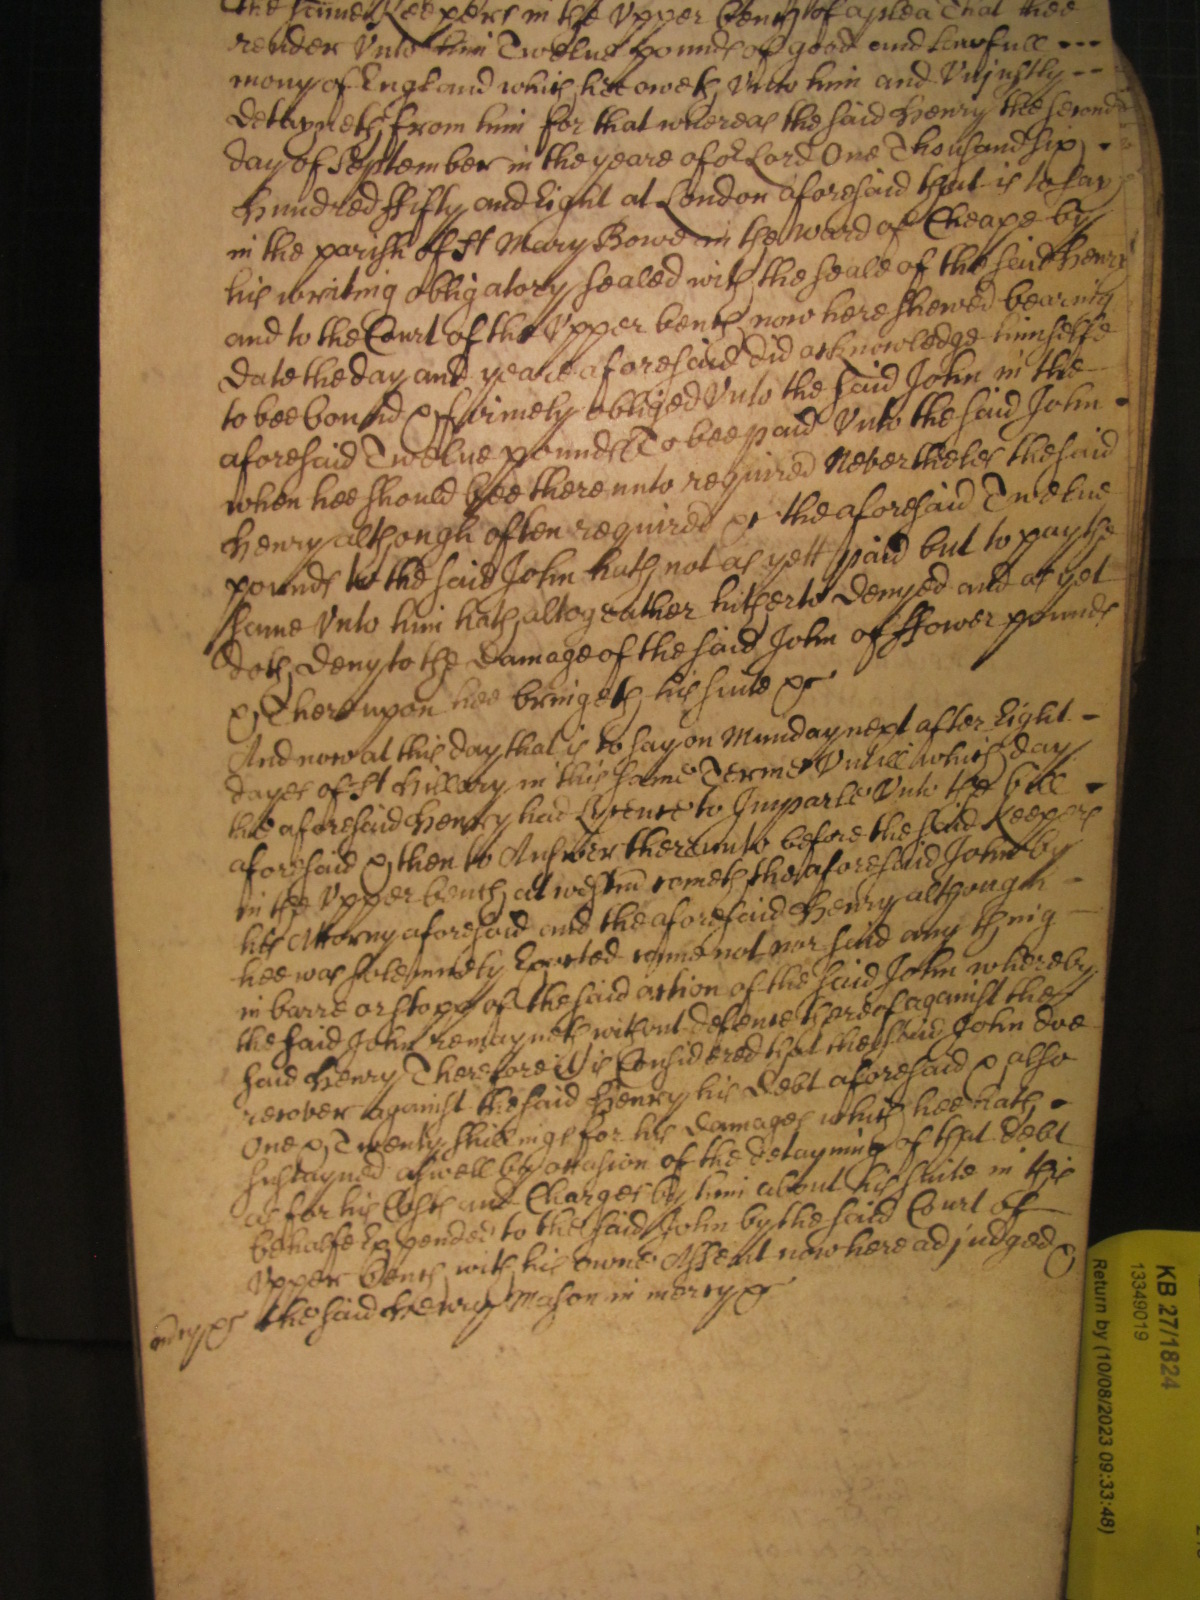 the same Keepers in the Upper Bench of a plea That hee
render Unto him Twelve pounds of good and lawfull
mony of England which hee oweth Unto him and Uniustly
detayneth from him for that whereas the said Henry the second
day of September in the yeare of or Lord One Thousand six
hundred ffifty and Eight at London aforesaid that is to say
in the parish of St Mary Bowe in the ward of Cheape by
his writing obligatory sealed with the seale of the said Henry
and to the Court of the Upper bench now here shewed bearing
date the day and yeare aforesaid did acknowledge himselfe
to bee bound & firmely obliged Unto the said John in the
aforesaid Twelve pounds To bee paid Unto the said John
when hee should bee thereunto required Neverthelesse the said
Henry although often required &c the aforesaid Twelve
pounds to the said John hath not as yett paid but to pay the
same Unto him hath altogeather hitherto denyed and as yet
doth deny to the damage of the said John of ffower pounds
& Thereupon hee bringeth his suite &c
And now at this day that is to say on Munday next after Eight
dayes of St Hillary in this same Terme Untill which day
the aforesaid Henry had Licence to Imparle Unto the bill
aforesaid & then to Answer thereunto before the said Keepers
in the Upper bench at Westm cometh the aforesaid John by
his Attorny aforesaid and the aforesaid Henry although
hee was solemnely Exacted came not nor said any thing
in barre or stopp of the said action of the said John whereby
the said John remayneth without defence thereof against the
said Henry Therefore it is Considered that the said John doe
recover against the said Henry his Debt aforesaid & also
One & Twenty shillings for his damages which hee hath
sustayned aswell by occasion of the detayning of that debt
as for his Costs and Charges by him about his suite in this
behalfe Expended to the said John by the said Court of
Upper Bench with his owne Assent now here adjudged &
mercy &c the said Henry Mason in mercy &c
KB 27/1824
13349019
Return by (10/08/2023 09:33:48)